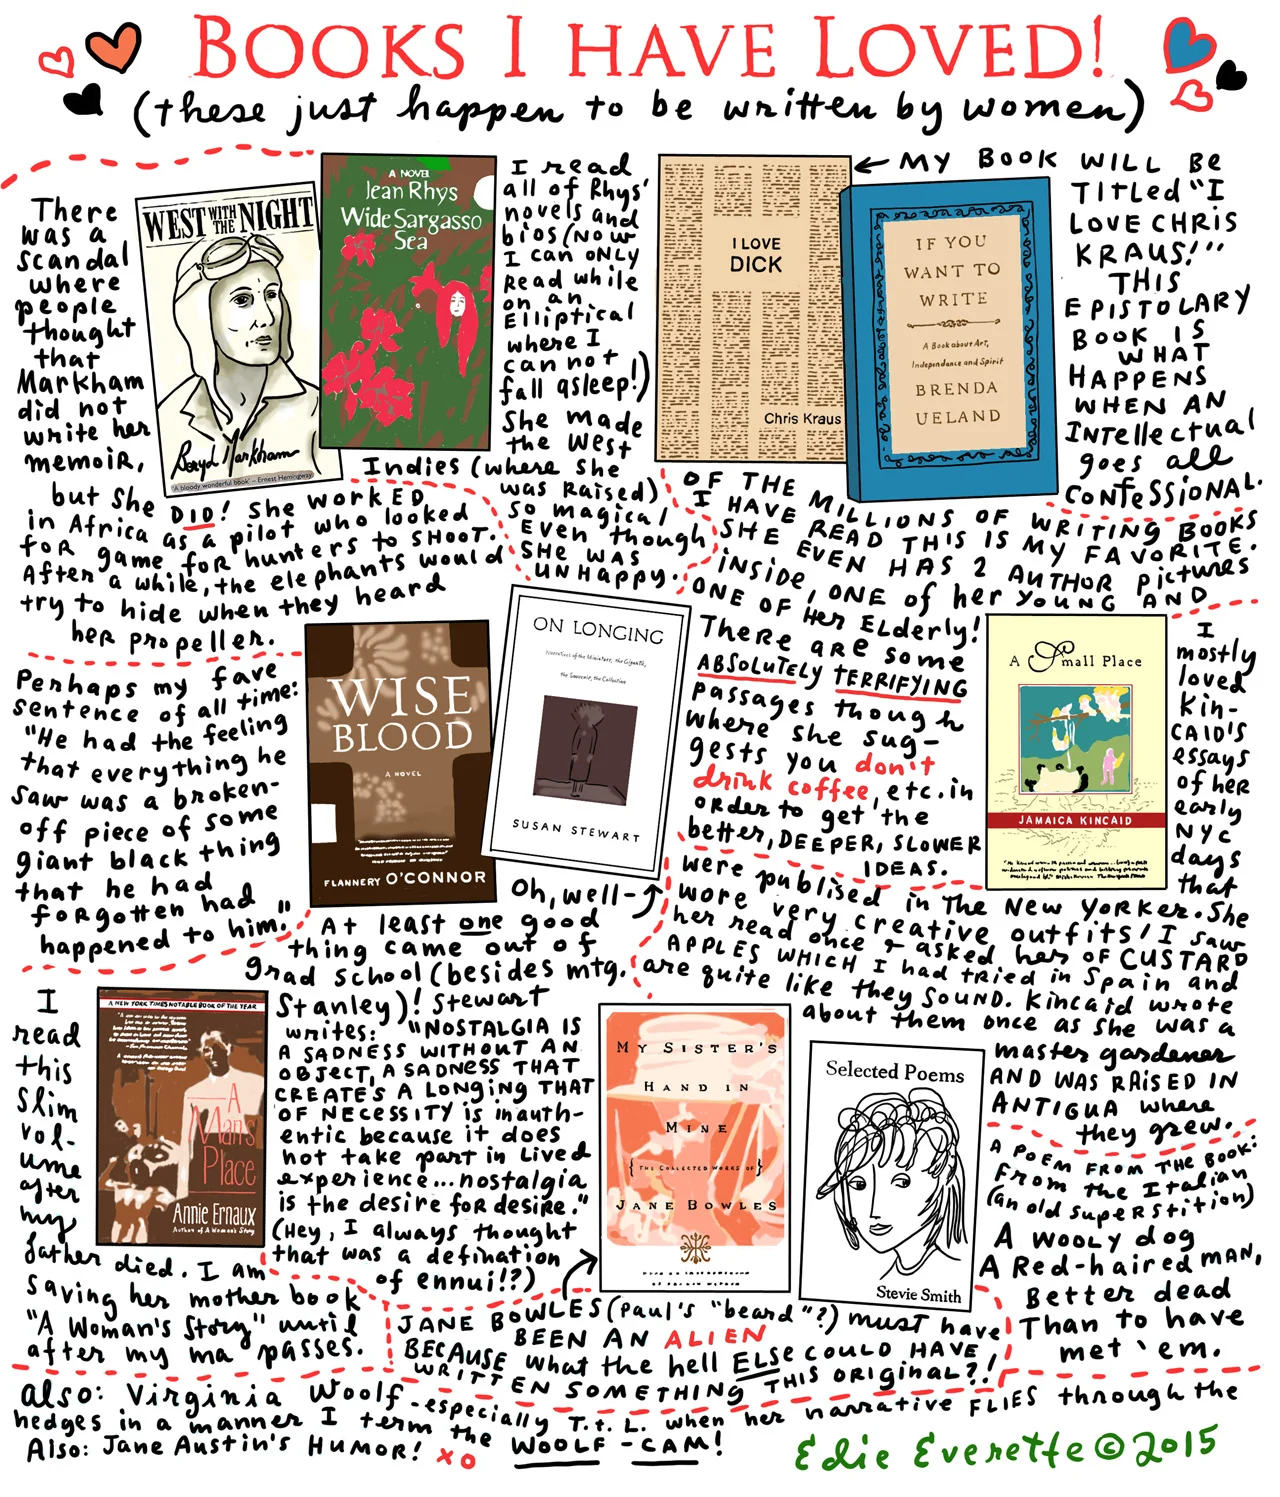 BOOKS I HAVE LOVED!
(these just happen to be written by women)
There
was a
scandal
where
people
thought
that
Markham
did not
write her
memoir,
but she DID! She worked
in Africa as a pilot who looked
for game for hunters to shoot.
After a while, the elephants would
try to hide when they heard
her propeller.
WEST WITH THE NIGHT
Beryl Markham
'A bloody wonderful book' – Ernest Hemingway
A NOVEL
Jean Rhys
Wide Sargasso
Sea
I read
all of Rhys'
novels and
bios (now
I can only
read while
on an
elliptical
where I
can not
fall asleep!)
She made
the West
Indies (where she
was raised)
so magical
even though
she was
unhappy.
I LOVE
DICK
Chris Kraus
← MY BOOK WILL BE
TITLED "I
LOVE CHRIS
KRAUS!"
THIS
EPISTOLARY
BOOK IS
WHAT
HAPPENS
WHEN AN
INTellectual
goes all
CONFESSIONAL.
IF YOU
WANT TO
WRITE
A Book about Art,
Independence and Spirit
BRENDA
UELAND
OF THE MILLIONS OF WRITING BOOKS
I HAVE READ THIS IS MY FAVORITE.
SHE EVEN HAS 2 AUTHOR pictures
inside, one of her young AND
ONE OF Her Elderly!
There are some
ABSOLUTELY TERRIFYING
passages though
where she sug-
gests you don't
drink coffee, etc. in
order to get the
better, DEEPER, SLOWER
IDEAS.
Perhaps my fave
sentence of all time:
"He had the feeling
that everything he
saw was a broken-
off piece of some
giant black thing
that he had
forgotten had
happened to him."
WISE
BLOOD
A NOVEL
FLANNERY O'CONNOR
ON LONGING
Narratives of the Miniature, the Gigantic,
the Souvenir, the Collection
SUSAN STEWART
Oh, well-
At least one good
thing came out of
grad school (besides mtg.
Stanley)! Stewart
writes: "NOSTALGIA IS
A SADNESS WITHOUT AN
OBJECT, A SADNESS THAT
CREATES A LONGING THAT
OF NECESSITY is inauth-
entic because it does
not take part in Lived
experience...nostalgia
is the desire for desire."
(Hey, I always thought
that was a defination
of ennui!?)
A Small Place
JAMAICA KINCAID
I
mostly
loved
Kin-
CAID'S
essays
of her
early
NYC
days
that
were publised in The New Yorker. She
wore very creative outfits! I saw
her read once & asked her OF CUSTARD
APPLES WHICH I had tried in Spain and
are quite like they sound. Kincaid wrote
about them once as she was a
master gardener
AND WAS RAISED IN
ANTIGUA where
they grew.
I
read
this
slim
vol-
ume
after
my
father died. I am
saving her mother book
"A Woman's Story" until
after my ma passes.
A NEW YORK TIMES NOTABLE BOOK OF THE YEAR
A
Man's
Place
Annie Ernaux
Author of A Woman's Story
MY SISTER'S
HAND IN
MINE
{THE COLLECTED WORKS OF}
JANE BOWLES
JANE BOWLES (Paul's "beard"?) must have
BEEN AN ALIEN
BECAUSE what the hell ELSE COULD HAVE
WRITTEN SOMETHING THIS ORIGINAL?!
Selected Poems
Stevie Smith
A POEM FROM THE BOOK:
From the Italian
(an old superstition)
A wooly dog
A Red-haired MAN,
Better dead
Than to have
met 'em.
also: Virginia Woolf - especially T.t.L. when her narrative FLIES through the
hedges in a manner I term the WOOLF-CAM!
Also: Jane Austin's HUMOR! xo
Edie Everette © 2015